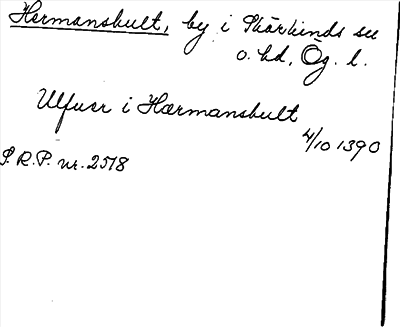 Hermanshult, by i Skärkinds sn
o. hd, Ög. l.
Ulfuer i Hærmanshult
4/10 1390
S.R.P. nr. 2578